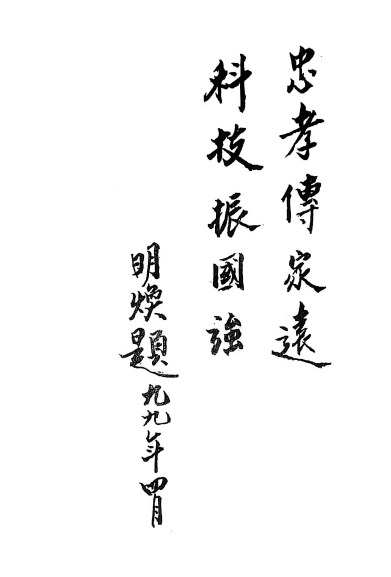 忠孝傳家遠
科技振國強
明煥題九九年四月